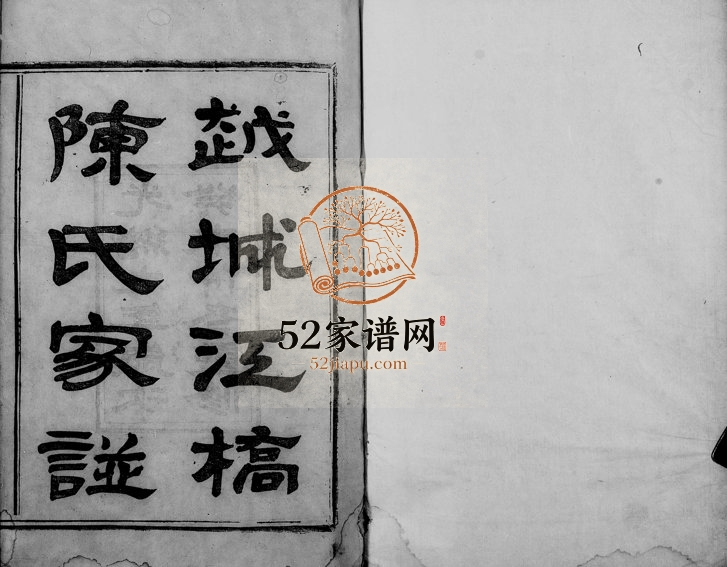 越城江橋
陳氏家譜
52家谱网
52jiapu.com